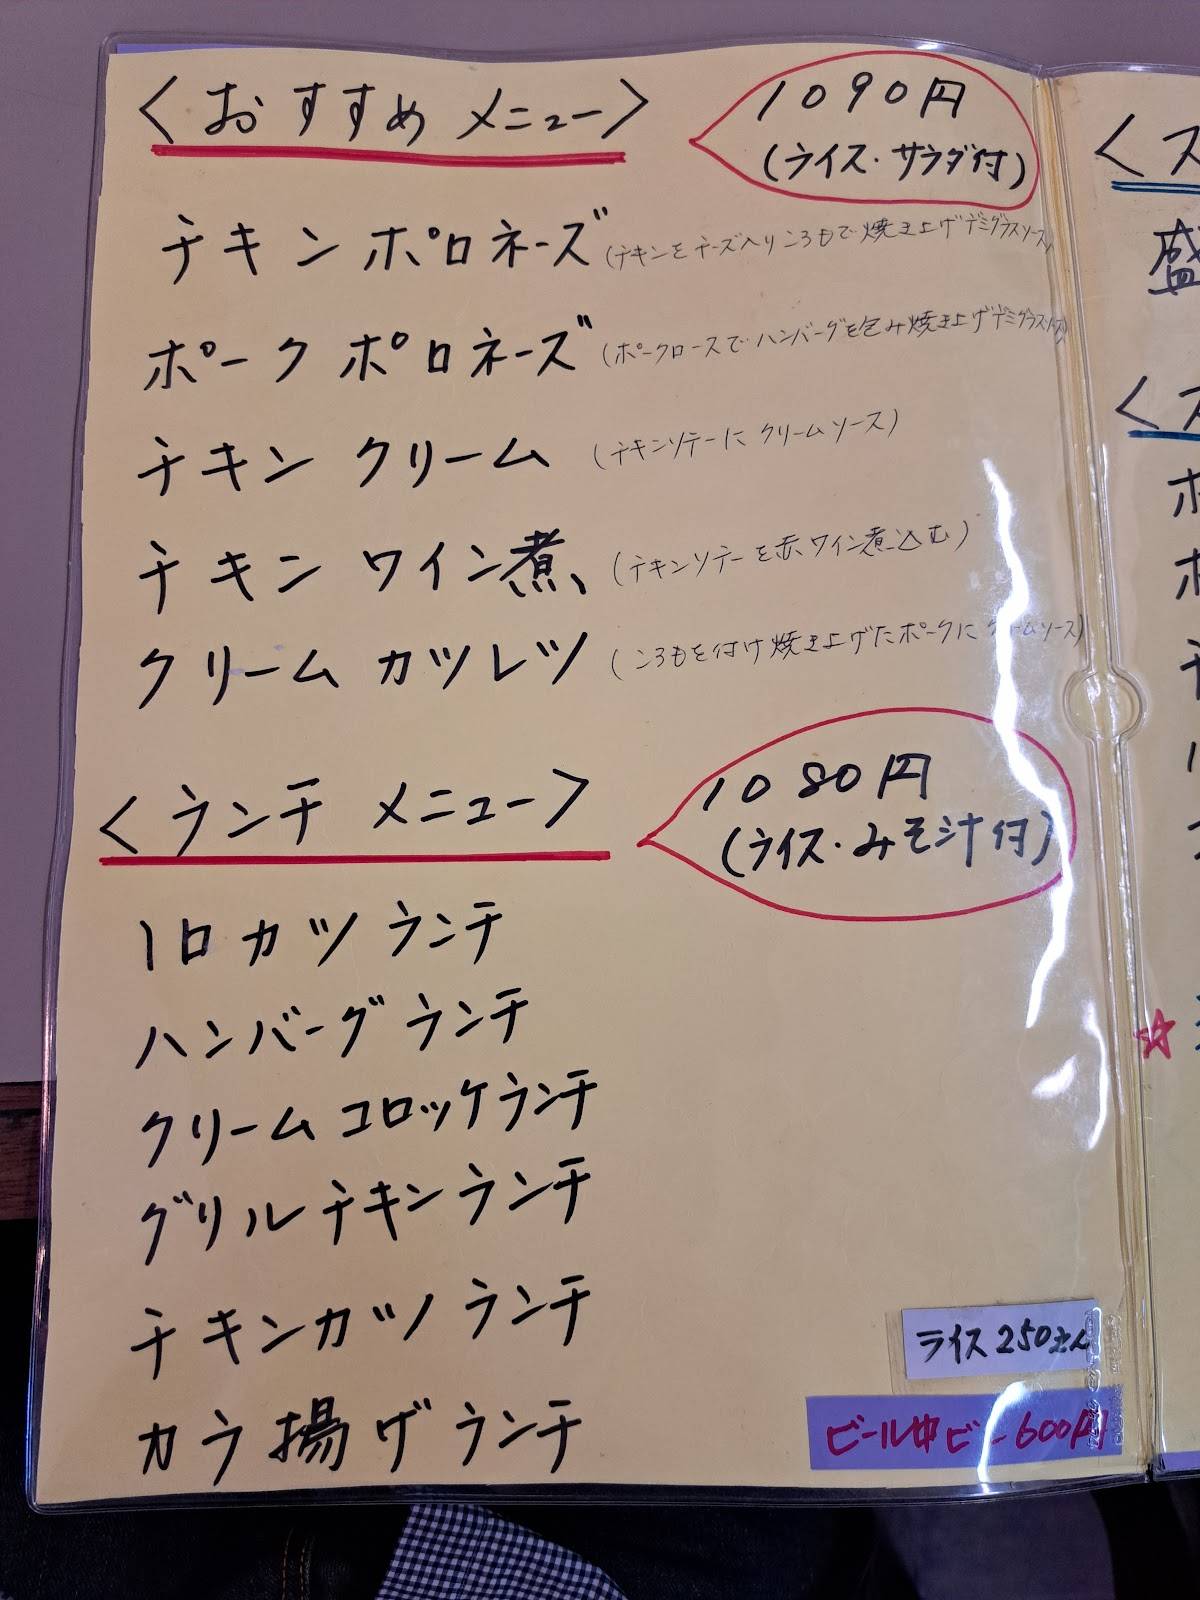 <おすすめ メニュー>
1090円
(ライス・サラダ付)
チキン ポロネーズ (チキンをチーズ入りころもで焼き上げデミグラスソース)
ポーク ポロネーズ (ポークロースでハンバーグを包み焼き上げデミグラスソース)
チキン クリーム (チキンソテーに クリームソース)
チキン ワイン煮 (チキンソテーを赤ワイン煮込む)
クリーム カツレツ (ころもを付け焼き上げたポークに クリームソース)
<ランチ メニュー>
1080円
(ライス・みそ汁付)
1口カツ ランチ
ハンバーグ ランチ
クリーム コロッケランチ
グリルチキン ランチ
チキンカツ ランチ
カラ揚げ ランチ
ライス250えん
ビール中ビン600円
<ス
盛
<ス
☆